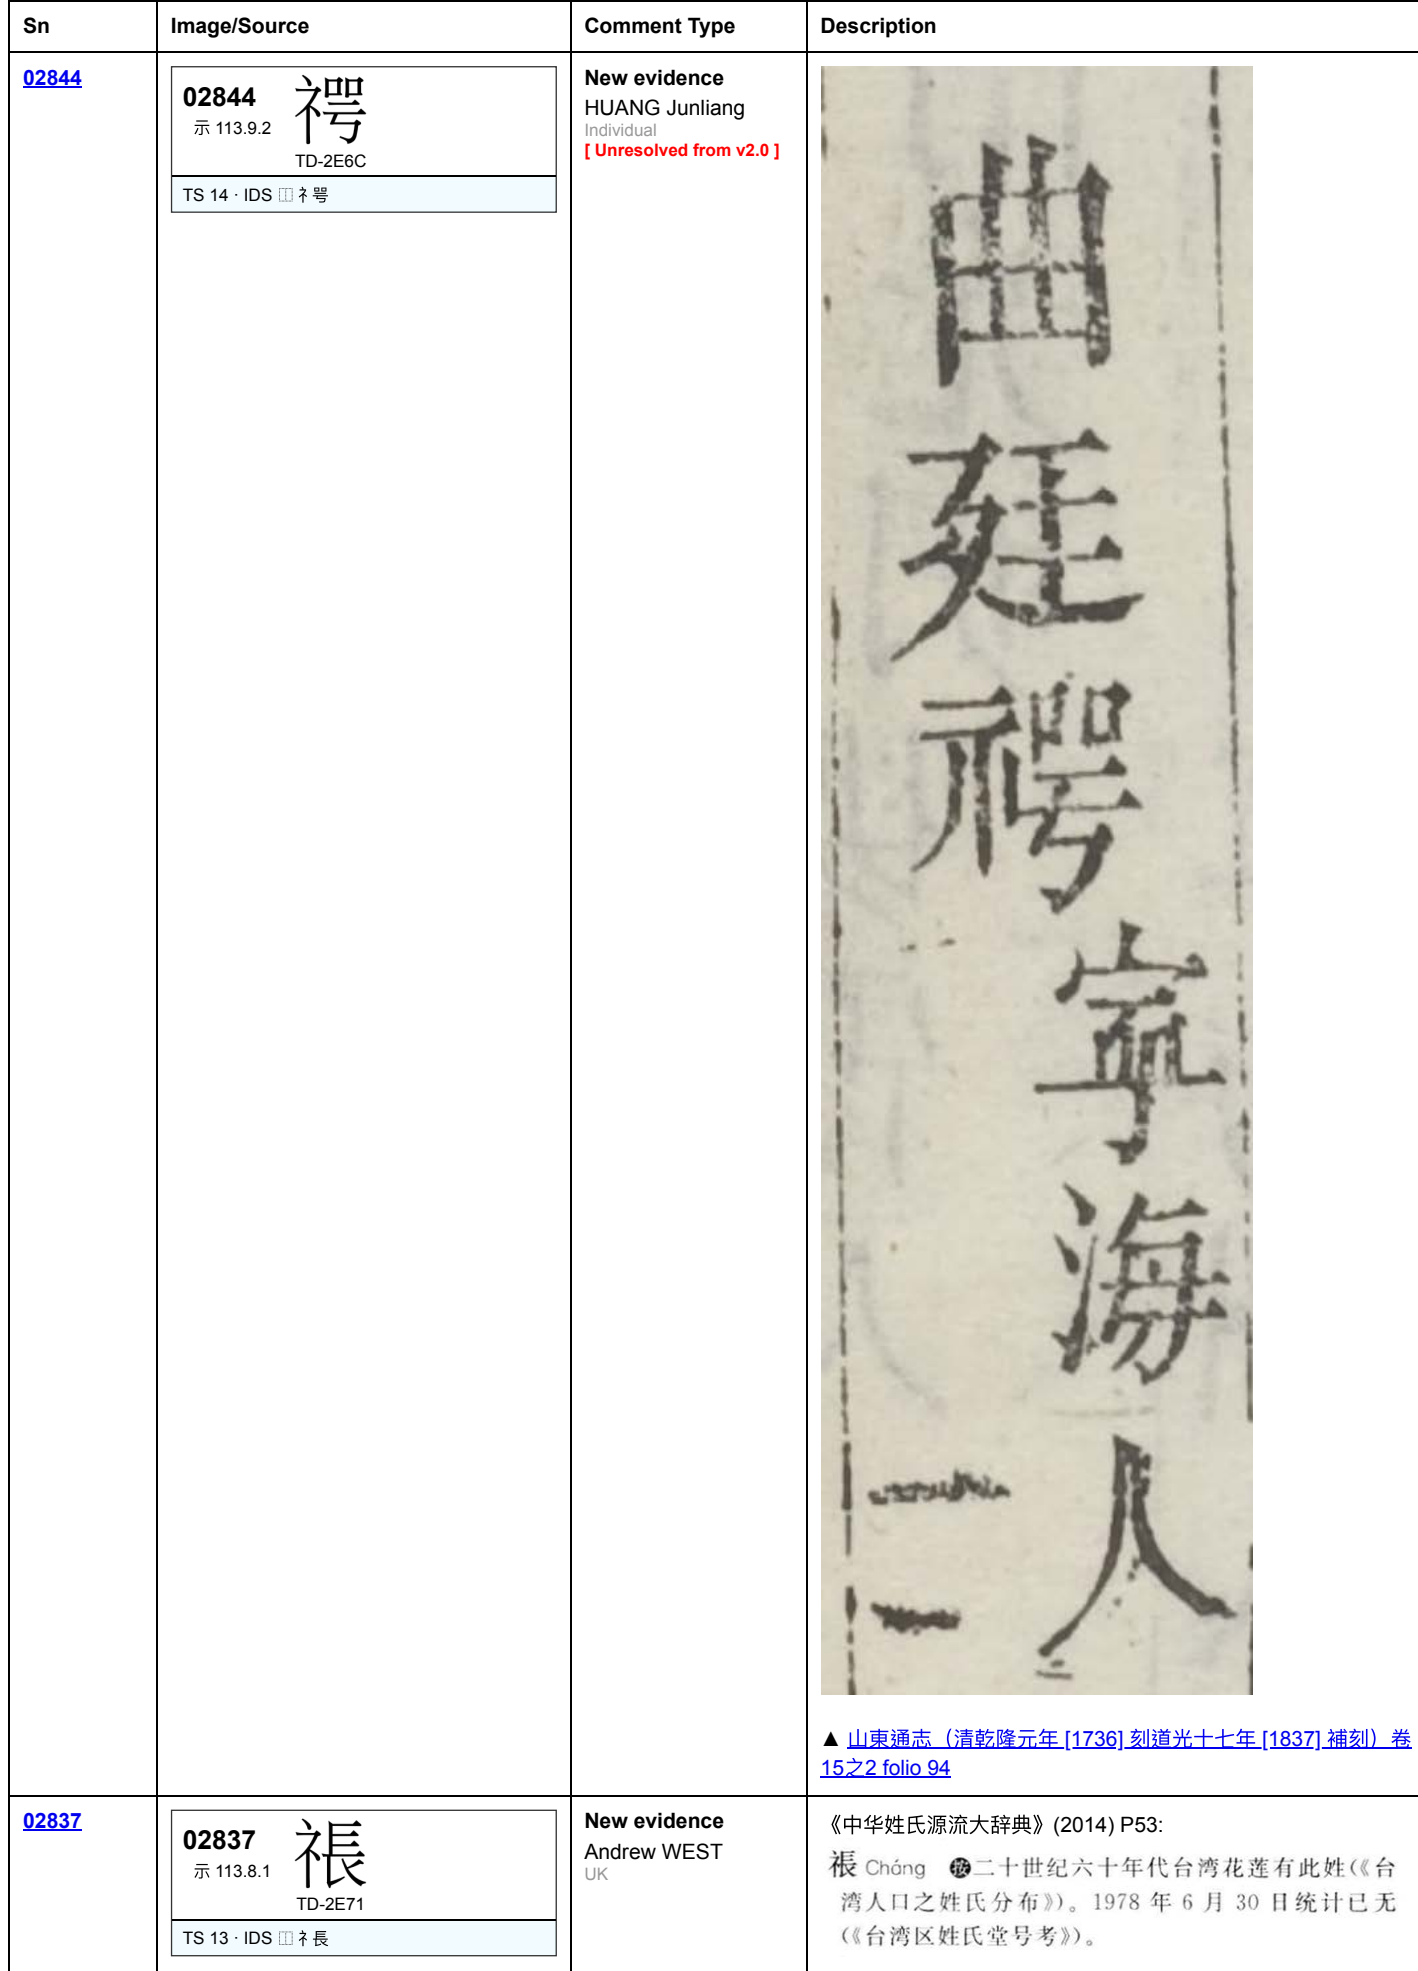 Sn Image/Source Comment Type Description
02844
02844
示 113.9.2
TD-2E6C
TS 14 · IDS ⿰礻咢
New evidence
HUANG Junliang
Individual
[ Unresolved from v2.0 ]
曲廷
寧海人
▲ 山東通志（清乾隆元年 [1736] 刻道光十七年 [1837] 補刻）卷
15之2 folio 94
02837
02837
示 113.8.1
TD-2E71
TS 13 · IDS ⿰礻長
New evidence
Andrew WEST
UK
《中华姓氏源流大辞典》(2014) P53:
Cháng 按二十世纪六十年代台湾花莲有此姓(《台
湾人口之姓氏分布》)。1978 年 6 月 30 日统计已无
(《台湾区姓氏堂号考》)。